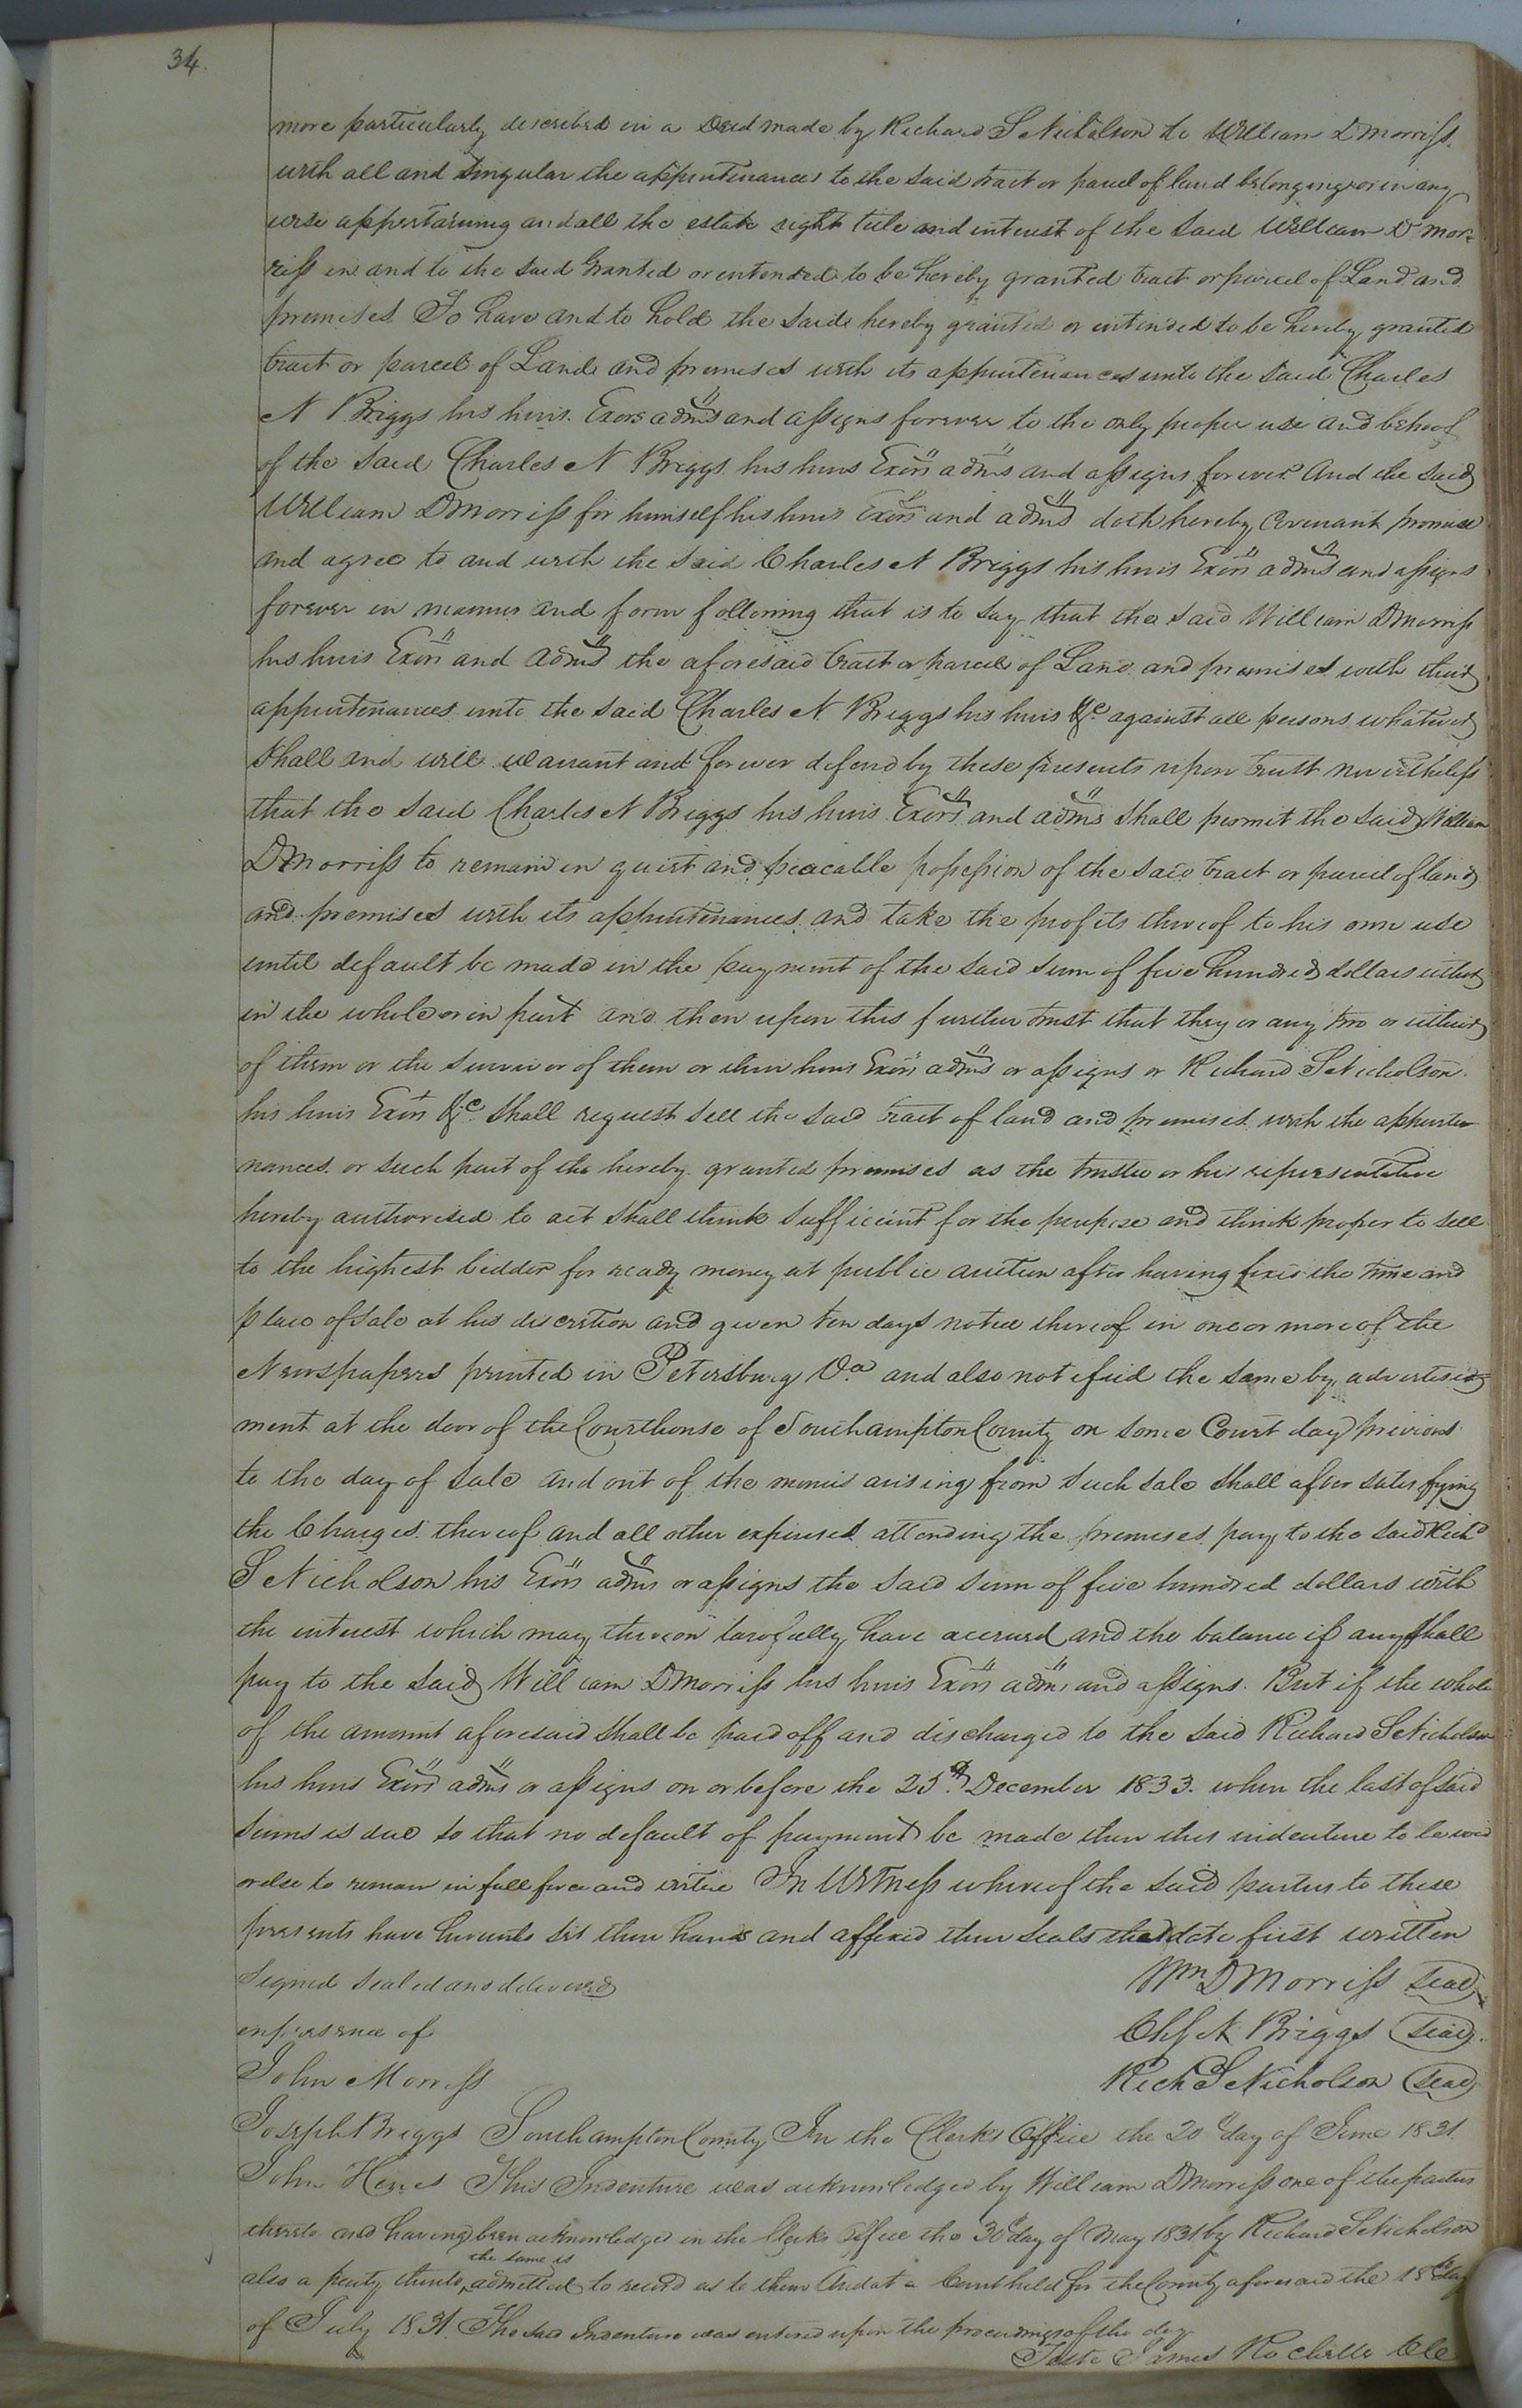 34.
more particularly described in a Deed made by Richard S Nicholson to William D Morriss.
with all and singular the appurtenances to the said tract or parcel of land belonging or in any
wise appertaining and all the estate right title and interest of the said William D Mor-
riss in and to the said Granted or intended to be hereby granted tract or parcel of Land and
premises To have and to hold the said hereby granted or intended to be hereby granted
tract or parcel of Land and premises with its appurtenances unto the said Charles
N Briggs his heirs Exors adms and assigns forever to the only proper use and behoof
of the said Charles N Briggs his heirs Exors adms and assigns forever And the said
William D Morriss for himself his heirs Exors and adms doth hereby Covenant promise
and agree to and with the said Charles N Briggs his heirs Exors adms and assigns
forever in manner and form following that is to say that the said William D Morriss
his heirs Exors and adms the aforesaid tract or parcel of Land and premises with their
appurtenances unto the said Charles N Briggs his heirs &c against all persons whatever
shall and will warrant and forever defend by these presents upon trust nevertheless
that the said Charles N Briggs his heirs Exors and adms shall permit the said William
D Morriss to remain in quiet and peacable possession of the said tract or parcel of land
and premises with its appurtenances and take the profits thereof to his own use
until default be made in the payment of the said sum of five hundred dollars either
in the whole or in part and then upon this further trust that they or any two or either
of them or the survivor of them or their heirs Exors adms or assigns or Richard S Nicholson
his heirs Exors &c shall request sell the said tract of land and premises with the appurte
nances or such part of the hereby granted premises as the trustee or his representative
hereby authorised to act shall think sufficient for the purpose and think proper to sell
to the highest bidder for ready money at public auction after having fixed the time and
place of sale at his discretion and given ten days notice thereof in one or more of the
Newspapers printed in Petersburg Va and also notified the same by advertise
ment at the door of the Courthouse of Southampton County on some Court day previous
to the day of sale and out of the monies arising from such sale shall after satisfying
the Charges thereof and all other expenses attending the premises pay to the said Richd
S Nicholson his Exors adms or assigns the said sum of five hundred dollars with
the interest which may thereon lawfully have accrued and the balance if any shall
pay to the said William D Morriss his heirs Exors adms and assigns. But if the whole
of the amount aforesaid shall be paid off and discharged to the said Richard S Nicholson
his heirs Exors adms or assigns on or before the 25th December 1833. when the last of said
sums is due so that no default of payment be made then this indenture to be void
or else to remain in full force and virtue In Witness whereof the said parties to these
presents have hereunto set their hands and affixed their seals the date first written
Signed sealed and delivered Wm D Morriss Seal
in presence of Chs N Briggs Seal
John Morriss Rich S Nicholson Seal
Joseph Briggs Southampton County In the Clerks Office the 20 day of June 1831.
John Hines This Indenture was acknowledged by William D Morriss one of the parties
thereto and having been acknowledged in the Clerks Office the 30 day of May 1831 by Richard S Nicholson
the same is
also a party thereto, admitted to record as to them And at a Court held for the County aforesaid the 18th day
of July 1831 The said Indenture was entered upon the proceedings of the day
Teste James Rochelle Cle